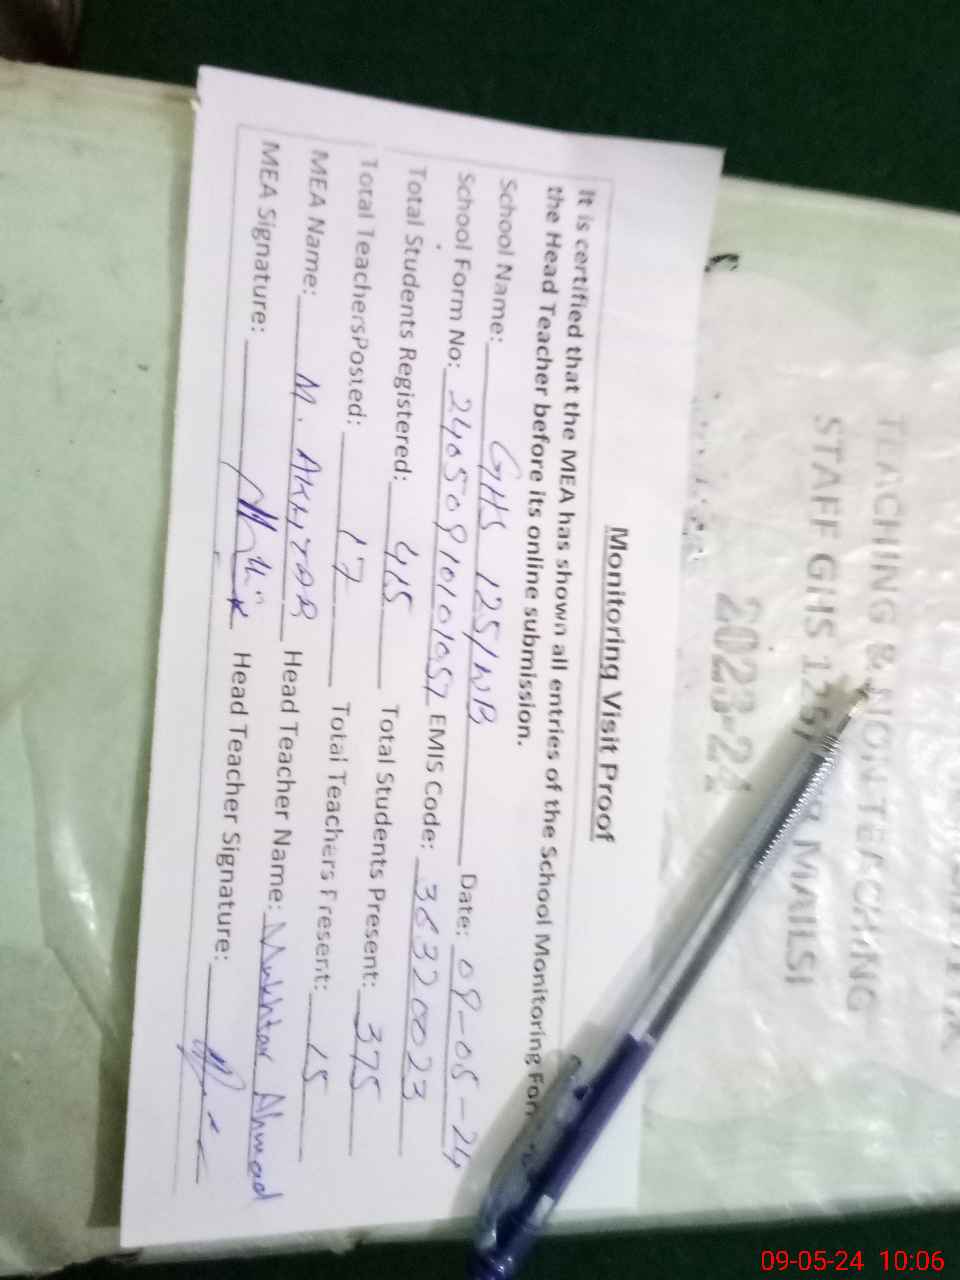 Monitoring Visit Proof
It is certified that the MEA has shown all entries of the School Monitoring
the Head Teacher before its online submission.
School Name: GHS 125/WB Date: 09-05-24
School Form No: 24050910101057 EMIS Code: 36320023
Total Students Registered: 415 Total Students Present: 375
Total TeachersPosted: 17 Total Teachers Present: 15
MEA Name: M. AKHTAR Head Teacher Name: Mukhtar Ahmad
MEA Signature: Head Teacher Signature:
TEACHING & NON TEACHING
STAFF GHS MAILSI
2023-24
09-05-24 10:06